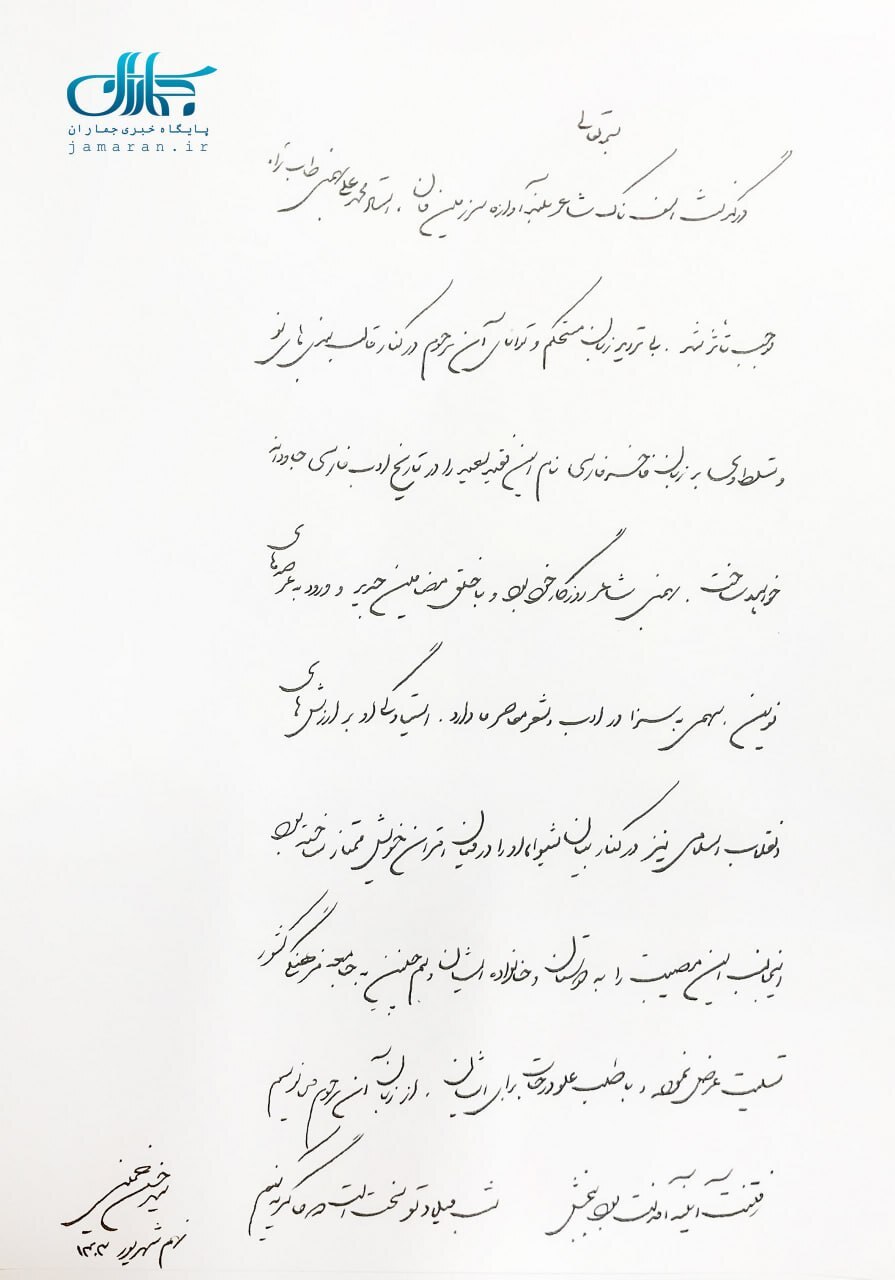 جماران
پایگاه خبری جماران
jamaran.ir
بسمه تعالی
درگذشت اسف ناک شاعر بلندآوازه سرزمین مان، استاد محمدعلی بهمنی طاب ثراه
موجب تأثر شد. بی تردید زبان مستحکم و توانای آن مرحوم در کنار قالب بندی های نو
و تسلط وی بر زبان فاخر فارسی نام این فقید سعید را در تاریخ ادب فارسی جاودانه
خواهد ساخت. بهمنی شاعر روزگار خود بود و با خلق مضامین جدید و ورود به عرصه های
نوین، سهمی به سزا در ادب و شعر معاصر ما دارد. ایستادگی او بر ارزش های
انقلاب اسلامی نیز در کنار بیان شیوا، او را در میان اقران خویش ممتاز ساخته بود
اینجانب این مصیبت را به دوستان و خانواده ایشان و هم چنین به جامعه فرهنگی کشور
تسلیت عرض نموده و با طلب علو درجات برای ایشان، از زبان آن مرحوم می نویسم
رفتنت آینه آمدنت بود ببخش شب میلاد تو تلخ است که ما گریه کنیم
سید حسن خمینی
نهم شهریور ۱۴۰۳